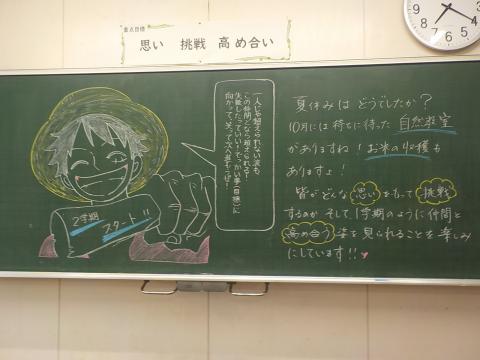 重点目標
思い 挑戦 高め合い
一人じゃ越えられない波も
この仲間となら超えられる!
失敗したっていい!でっかい夢(目標)に
向かって、笑って突き進もうぜ!
2学期
スタート!!
夏休みは どうでしたか?
10月には待ちに待った 自然教室
がありますね! お米の収穫も
ありますよ!
皆がどんな 思い をもって 挑戦
するのか そして、1学期のように仲間と
高め合う 姿を見られることを楽しみ
にしています!!